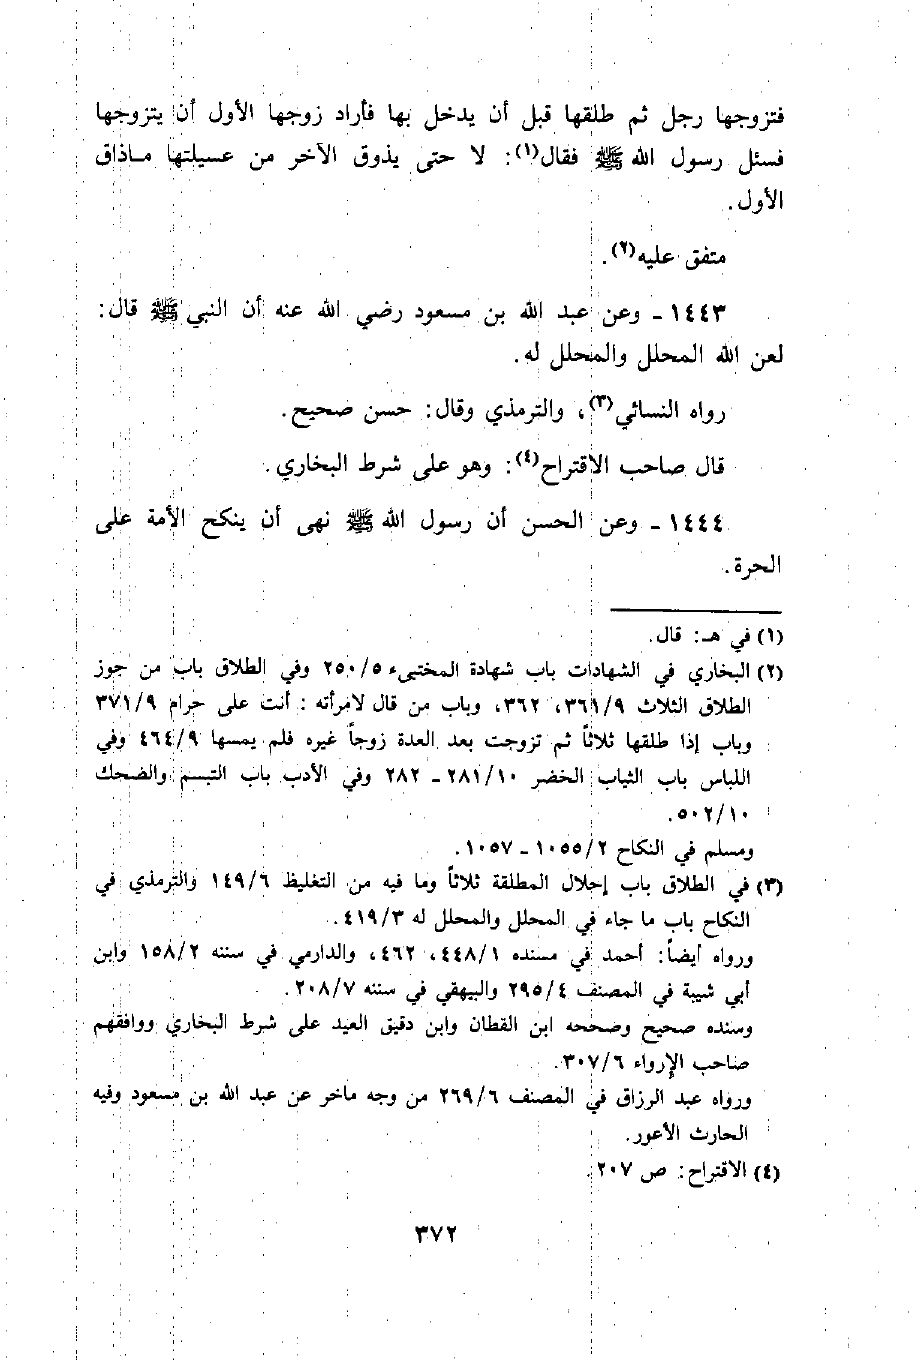 فتزوجها رجل ثم طلقها قبل أن يدخل بها فأراد زوجها الأول أن يتزوجها
فسئل رسول الله ﷺ فقال(١): لا حتى يذوق الآخر من عسيلتها ماذاق
الأول.
متفق عليه(٢).
١٤٤٣ - وعن عبد الله بن مسعود رضي الله عنه أن النبي ﷺ قال:
لعن الله المحلل والمحلل له.
رواه النسائي(٣)، والترمذي وقال: حسن صحيح.
قال صاحب الاقتراح(٤): وهو على شرط البخاري.
١٤٤٤ - وعن الحسن أن رسول الله ﷺ نهى أن ينكح الأمة على
الحرة.
(١) في هـ: قال.
(٢) البخاري في الشهادات باب شهادة المختبىء ٢٥٠/٥ وفي الطلاق باب من جوز
الطلاق الثلاث ٣٦١/٩، ٣٦٢، وباب من قال لامرأته : أنت على حرام ٣٧١/٩
وباب إذا طلقها ثلاثاً ثم تزوجت بعد العدة زوجاً غيره فلم يمسها ٤٦٤/٩ وفي
اللباس باب الثياب الخضر ٢٨١/١٠ - ٢٨٢ وفي الأدب باب التبسم والضحك
٥٠٢/١٠.
ومسلم في النكاح ١٠٥٥/٢ - ١٠٥٧.
(٣) في الطلاق باب إحلال المطلقة ثلاثاً وما فيه من التغليظ ١٤٩/٦ والترمذي في
النكاح باب ما جاء في المحلل والمحلل له ٤١٩/٣.
ورواه أيضاً: أحمد في مسنده ٤٤٨/١، ٤٦٢، والدارمي في سننه ١٥٨/٢ وابن
أبي شيبة في المصنف ٢٩٥/٤ والبيهقي في سننه ٢٠٨/٧.
وسنده صحيح وصححه ابن القطان وابن دقيق العيد على شرط البخاري ووافقهم
صاحب الإرواء ٣٠٧/٦.
ورواه عبد الرزاق في المصنف ٢٦٩/٦ من وجه ماخر عن عبد الله بن مسعود وفيه
الحارث الأعور.
(٤) الاقتراح: ص ٢٠٧.
٣٧٢